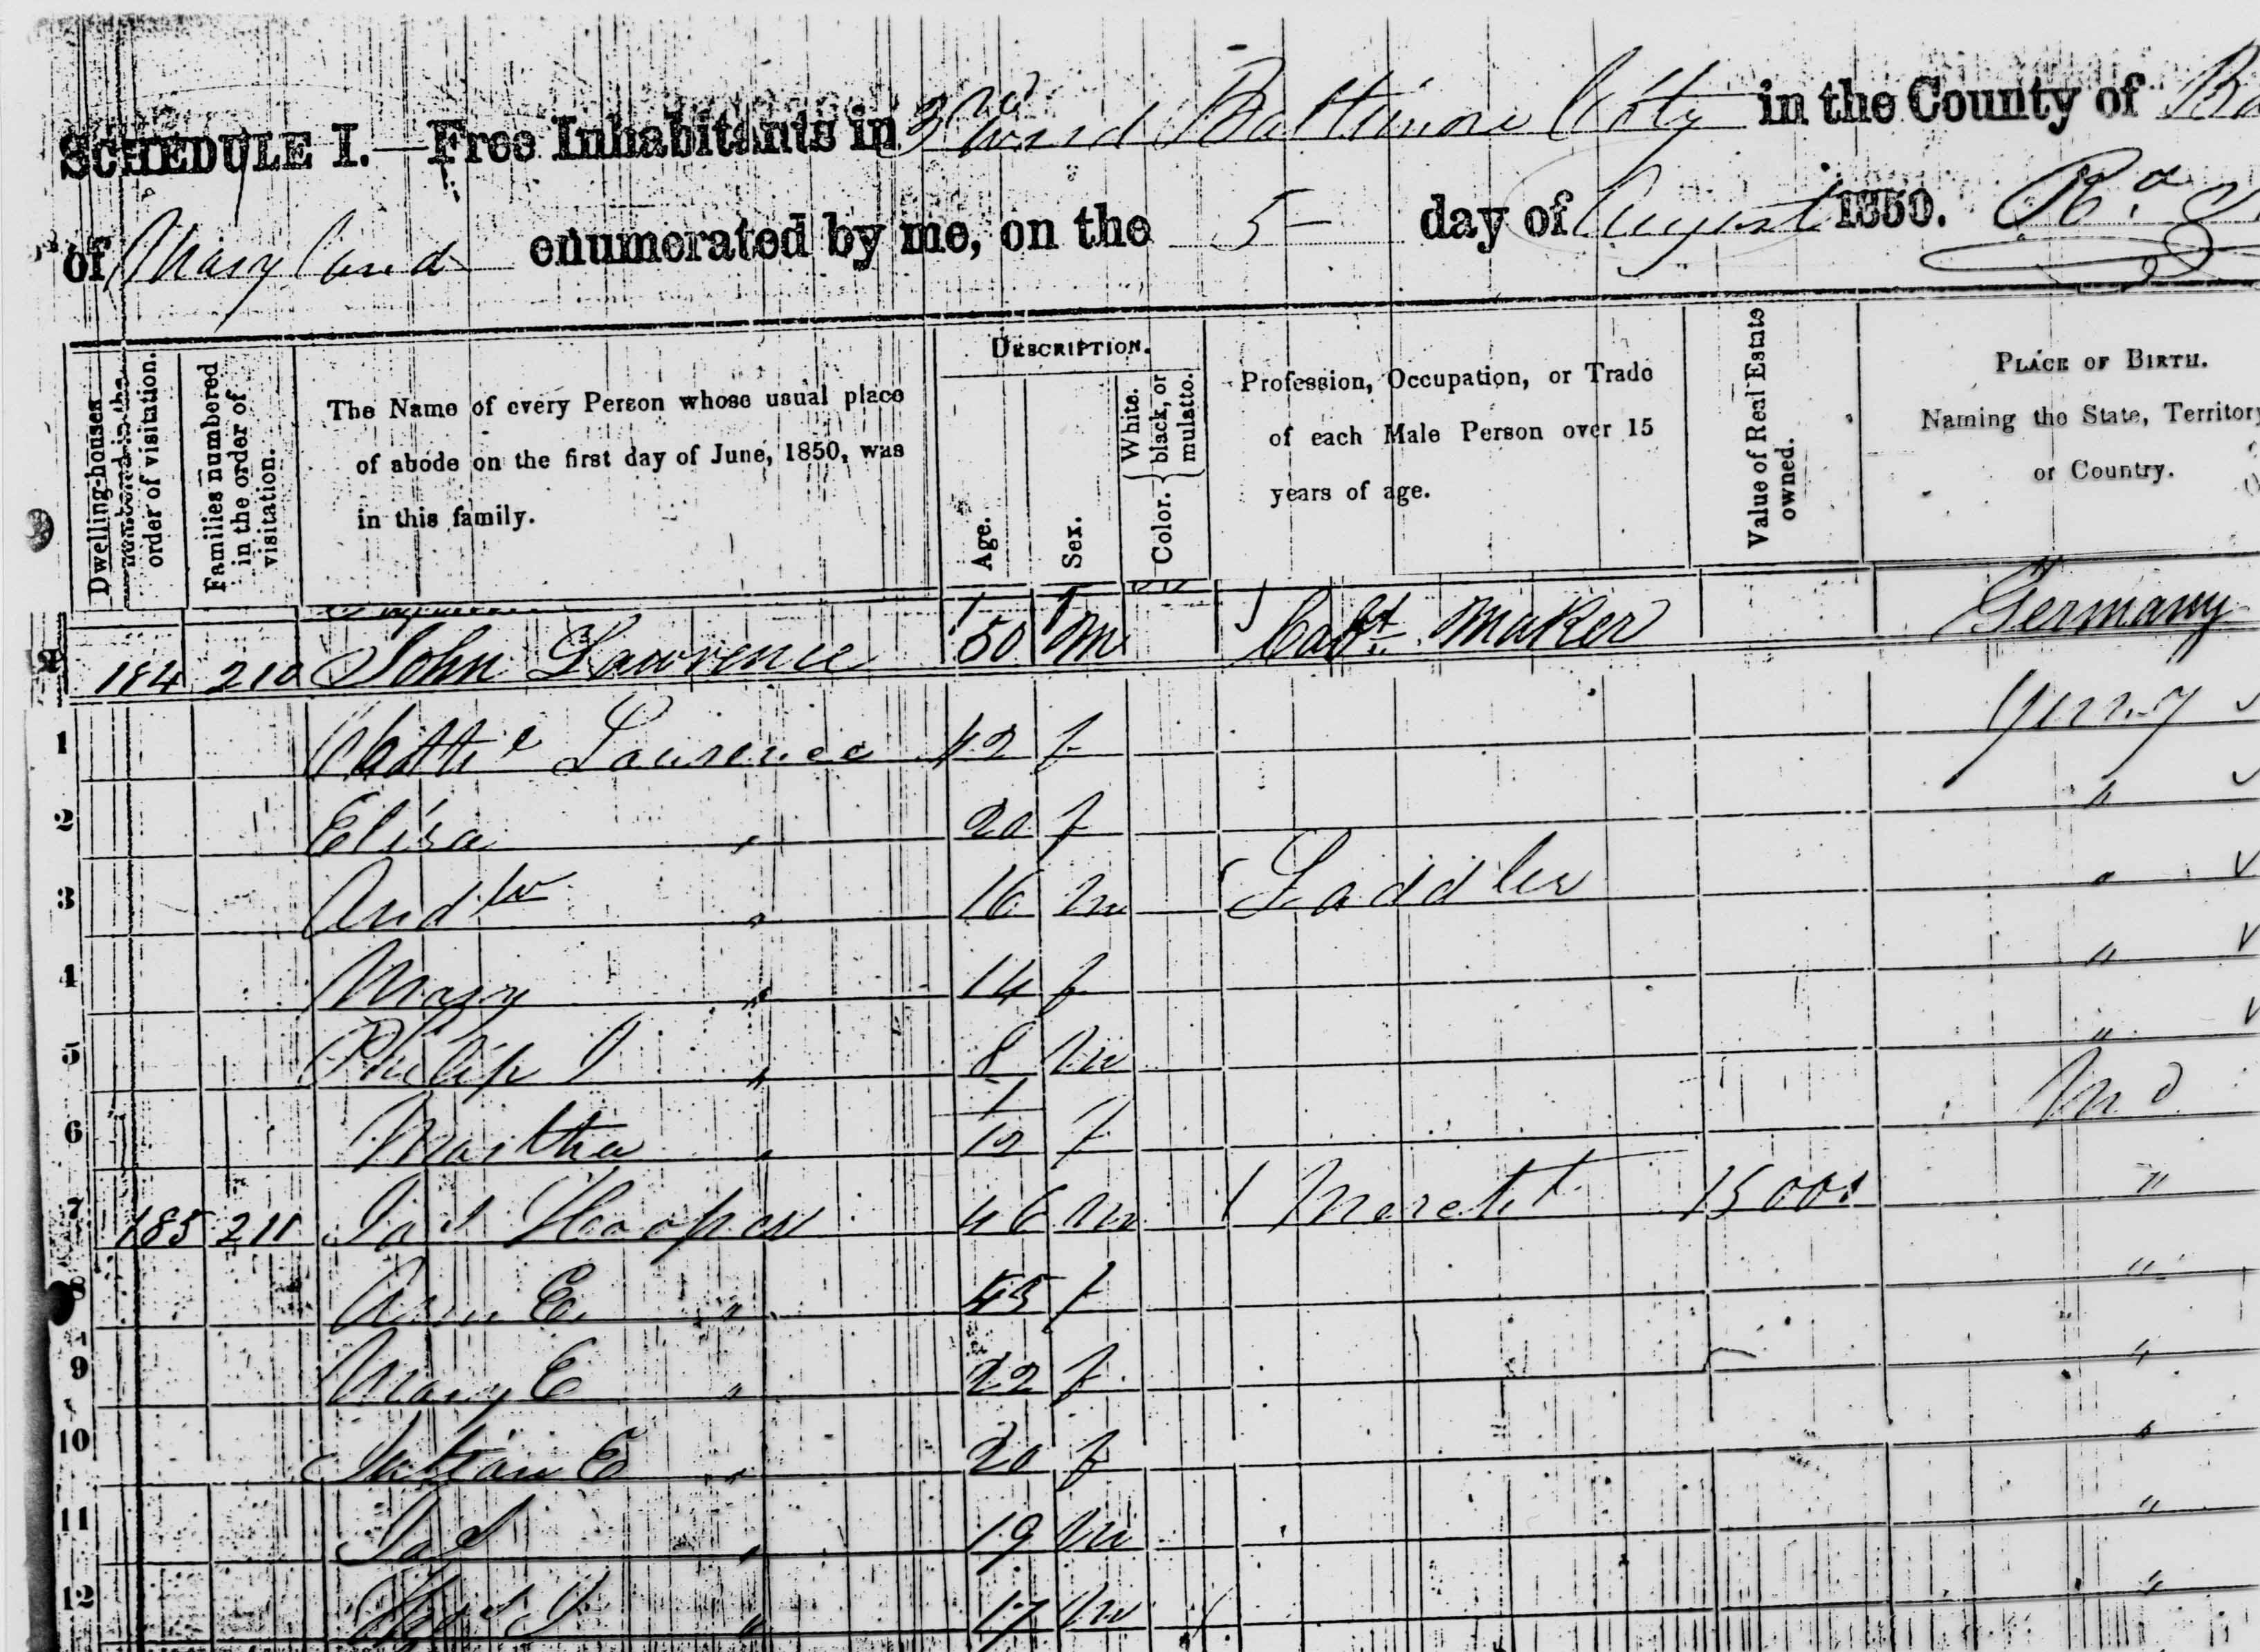 SCHEDULE I.—Free Inhabitants in 3rd Ward Baltimore City in the County of Ba
of Maryland enumerated by me, on the 5 day of August 1850.
Dwelling-houses numbered in the order of visitation.
Families numbered in the order of visitation.
The Name of every Person whose usual place
of abode on the first day of June, 1850, was
in this family.
DESCRIPTION.
Age.
Sex.
Color. { White, black, or mulatto.
Profession, Occupation, or Trade
of each Male Person over 15
years of age.
Value of Real Estate owned.
PLACE OF BIRTH.
Naming the State, Territory
or Country.
184 210 John Lawrence 50 m Cabt. Maker Germany
1 Cathe Lawrence 42 f Germy
2 Elisa " 20 f "
3 Andw " 16 m Saddler "
4 Mary " 14 f "
5 Philip J " 8 m "
6 Martha " 1/12 f Md
7 185 211 Jas Hooper 46 m Mercht 15000 "
8 Ann E. " 45 f "
9 Mary E " 22 f "
10 E " 20 f "
11 Jas " 19 m "
12 " 17 m "